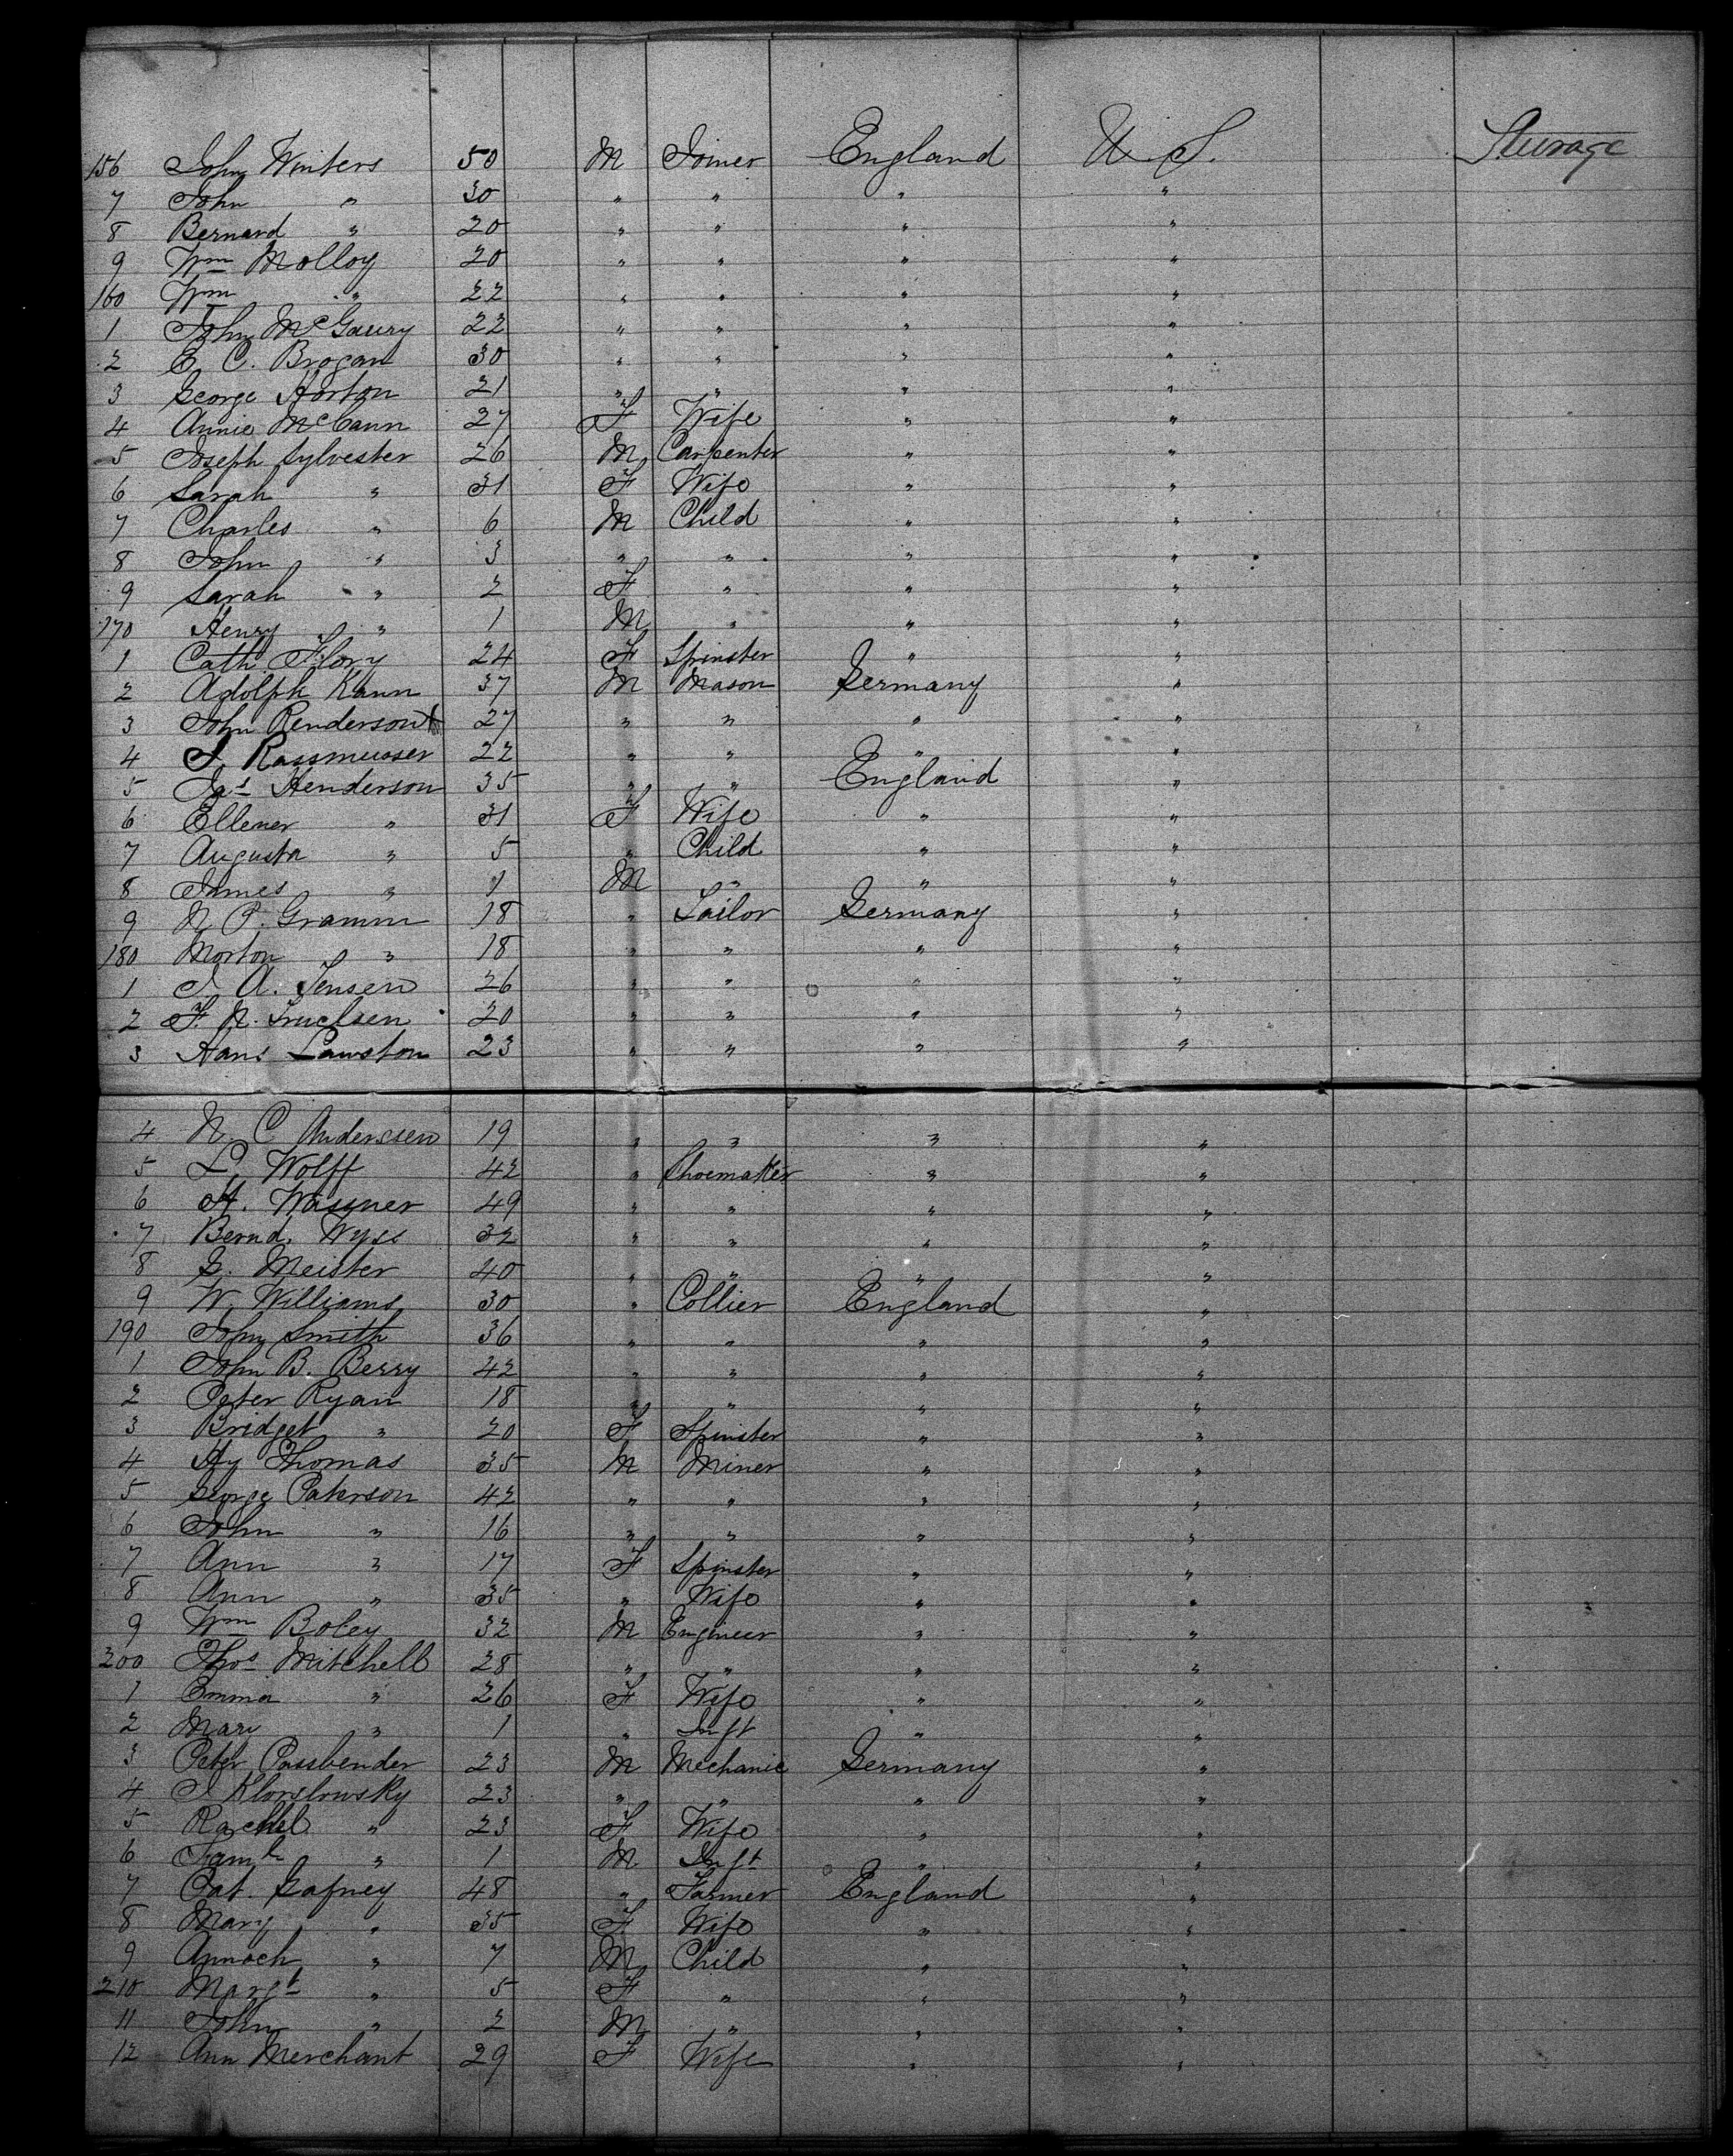 156 John Winters 50 M Joiner England U.S. Steerage
7 John " 30 " " " "
8 Bernard " 20 " " " "
9 Wm Molloy 20 " " " "
160 Wm " 22 " " " "
1 John McGaury 22 " " " "
2 E. C. Brogan 30 " " " "
3 George Horton 21 " " " "
4 Annie McCann 27 F Wife " "
5 Joseph Sylvester 26 M Carpenter " "
6 Sarah " 31 F Wife " "
7 Charles " 6 M Child " "
8 John " 3 " " " "
9 Sarah " 2 F " " "
170 Henry " 1 M " " "
1 Cath Flory 24 F Spinster " "
2 Adolph Kann 37 M Mason Germany "
3 John Renderson 27 " " " "
4 J. Rassmusser 22 " " " "
5 Jas Henderson 35 " " England "
6 Ellener " 31 F Wife " "
7 Augusta " 5 " Child " "
8 James " 1 M " " "
9 N. P. Gramm 18 " Tailor Germany "
180 Morton " 18 " " " "
1 J. A. Jensen 26 " " " "
2 F. N. Truelsen 20 " " " "
3 Hans Lawston 23 " " " "
4 N. C Anderssen 19 " " " "
5 L. Wolff 42 " Shoemaker " "
6 H. Wassner 49 " " " "
7 Bernd. Wyss 32 " " " "
8 G. Meister 40 " " " "
9 W. Williams 30 " Collier England "
190 John Smith 36 " " " "
1 John B. Berry 42 " " " "
2 Peter Ryan 18 " " " "
3 Bridget " 20 F Spinster " "
4 Hy Thomas 35 M Miner " "
5 George Paterson 42 " " " "
6 John " 16 " " " "
7 Ann " 17 F Spinster " "
8 Ann " 35 " Wife " "
9 Wm Boley 32 M Engineer " "
200 Thos Mitchell 28 " " " "
1 Emma " 26 F Wife " "
2 Mary " 1 " Inft " "
3 Peter Passbender 23 M Mechanic Germany "
4 J 23 " " " "
5 Rachel " 23 F Wife " "
6 Saml " 1 M Inft " "
7 Pat. Gafney 48 " Farmer England "
8 Mary " 35 F Wife " "
9 " 7 M Child " "
210 Margt " 5 F " " "
11 John " 2 M " " "
12 Ann Merchant 29 F Wife " "